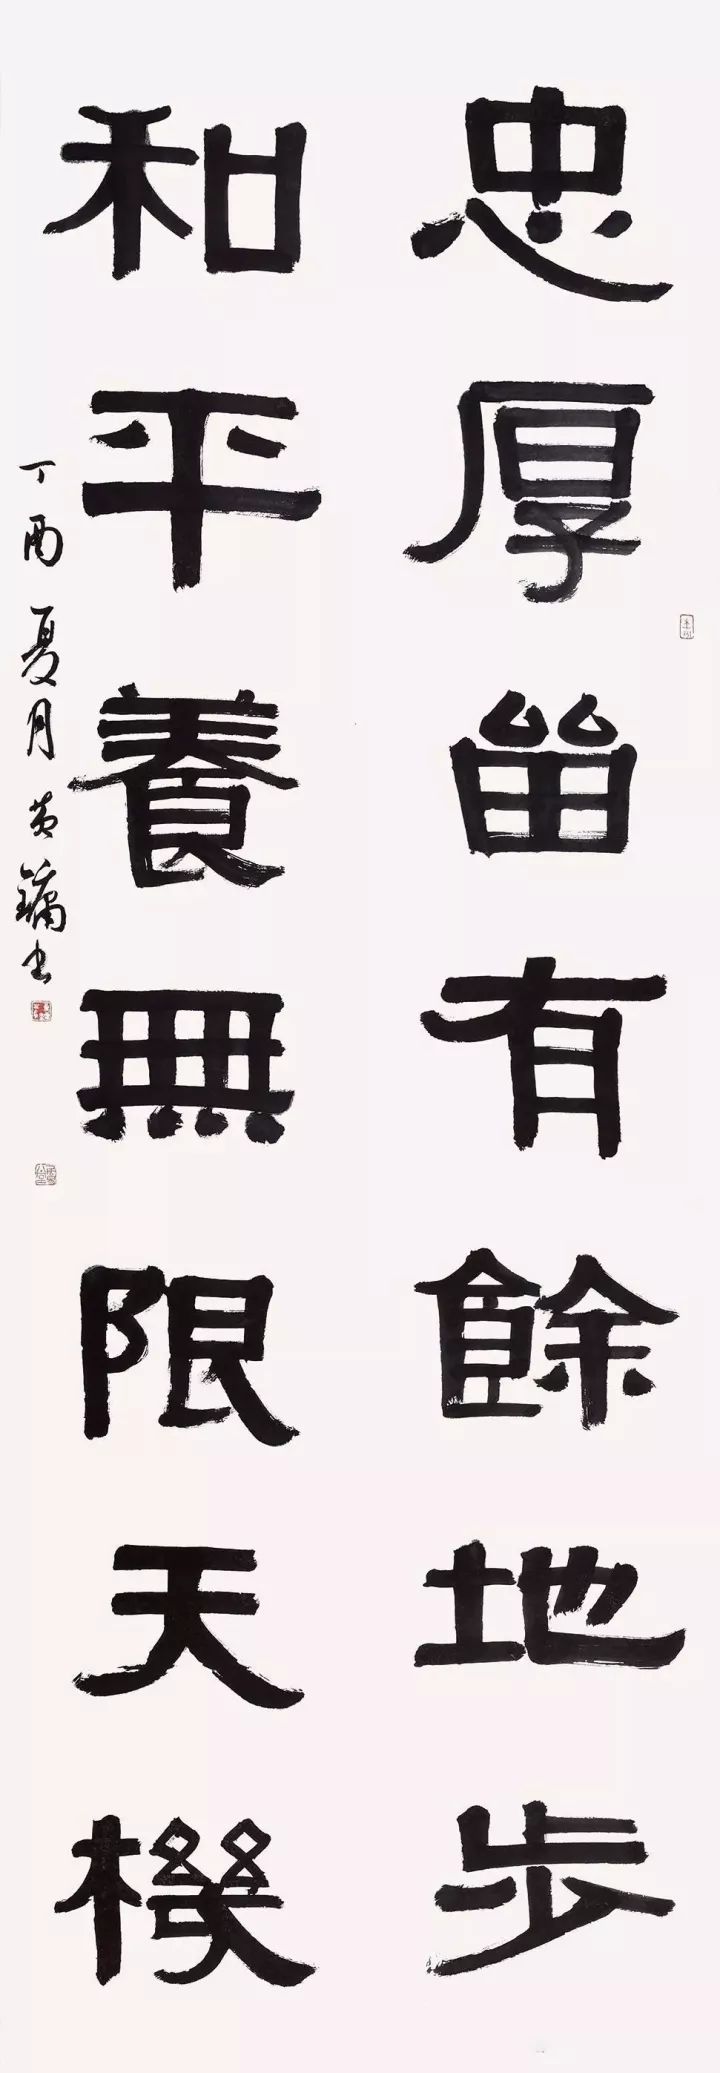 忠厚畱有餘地步
和平養無限天機
丁酉夏月黄鏞书